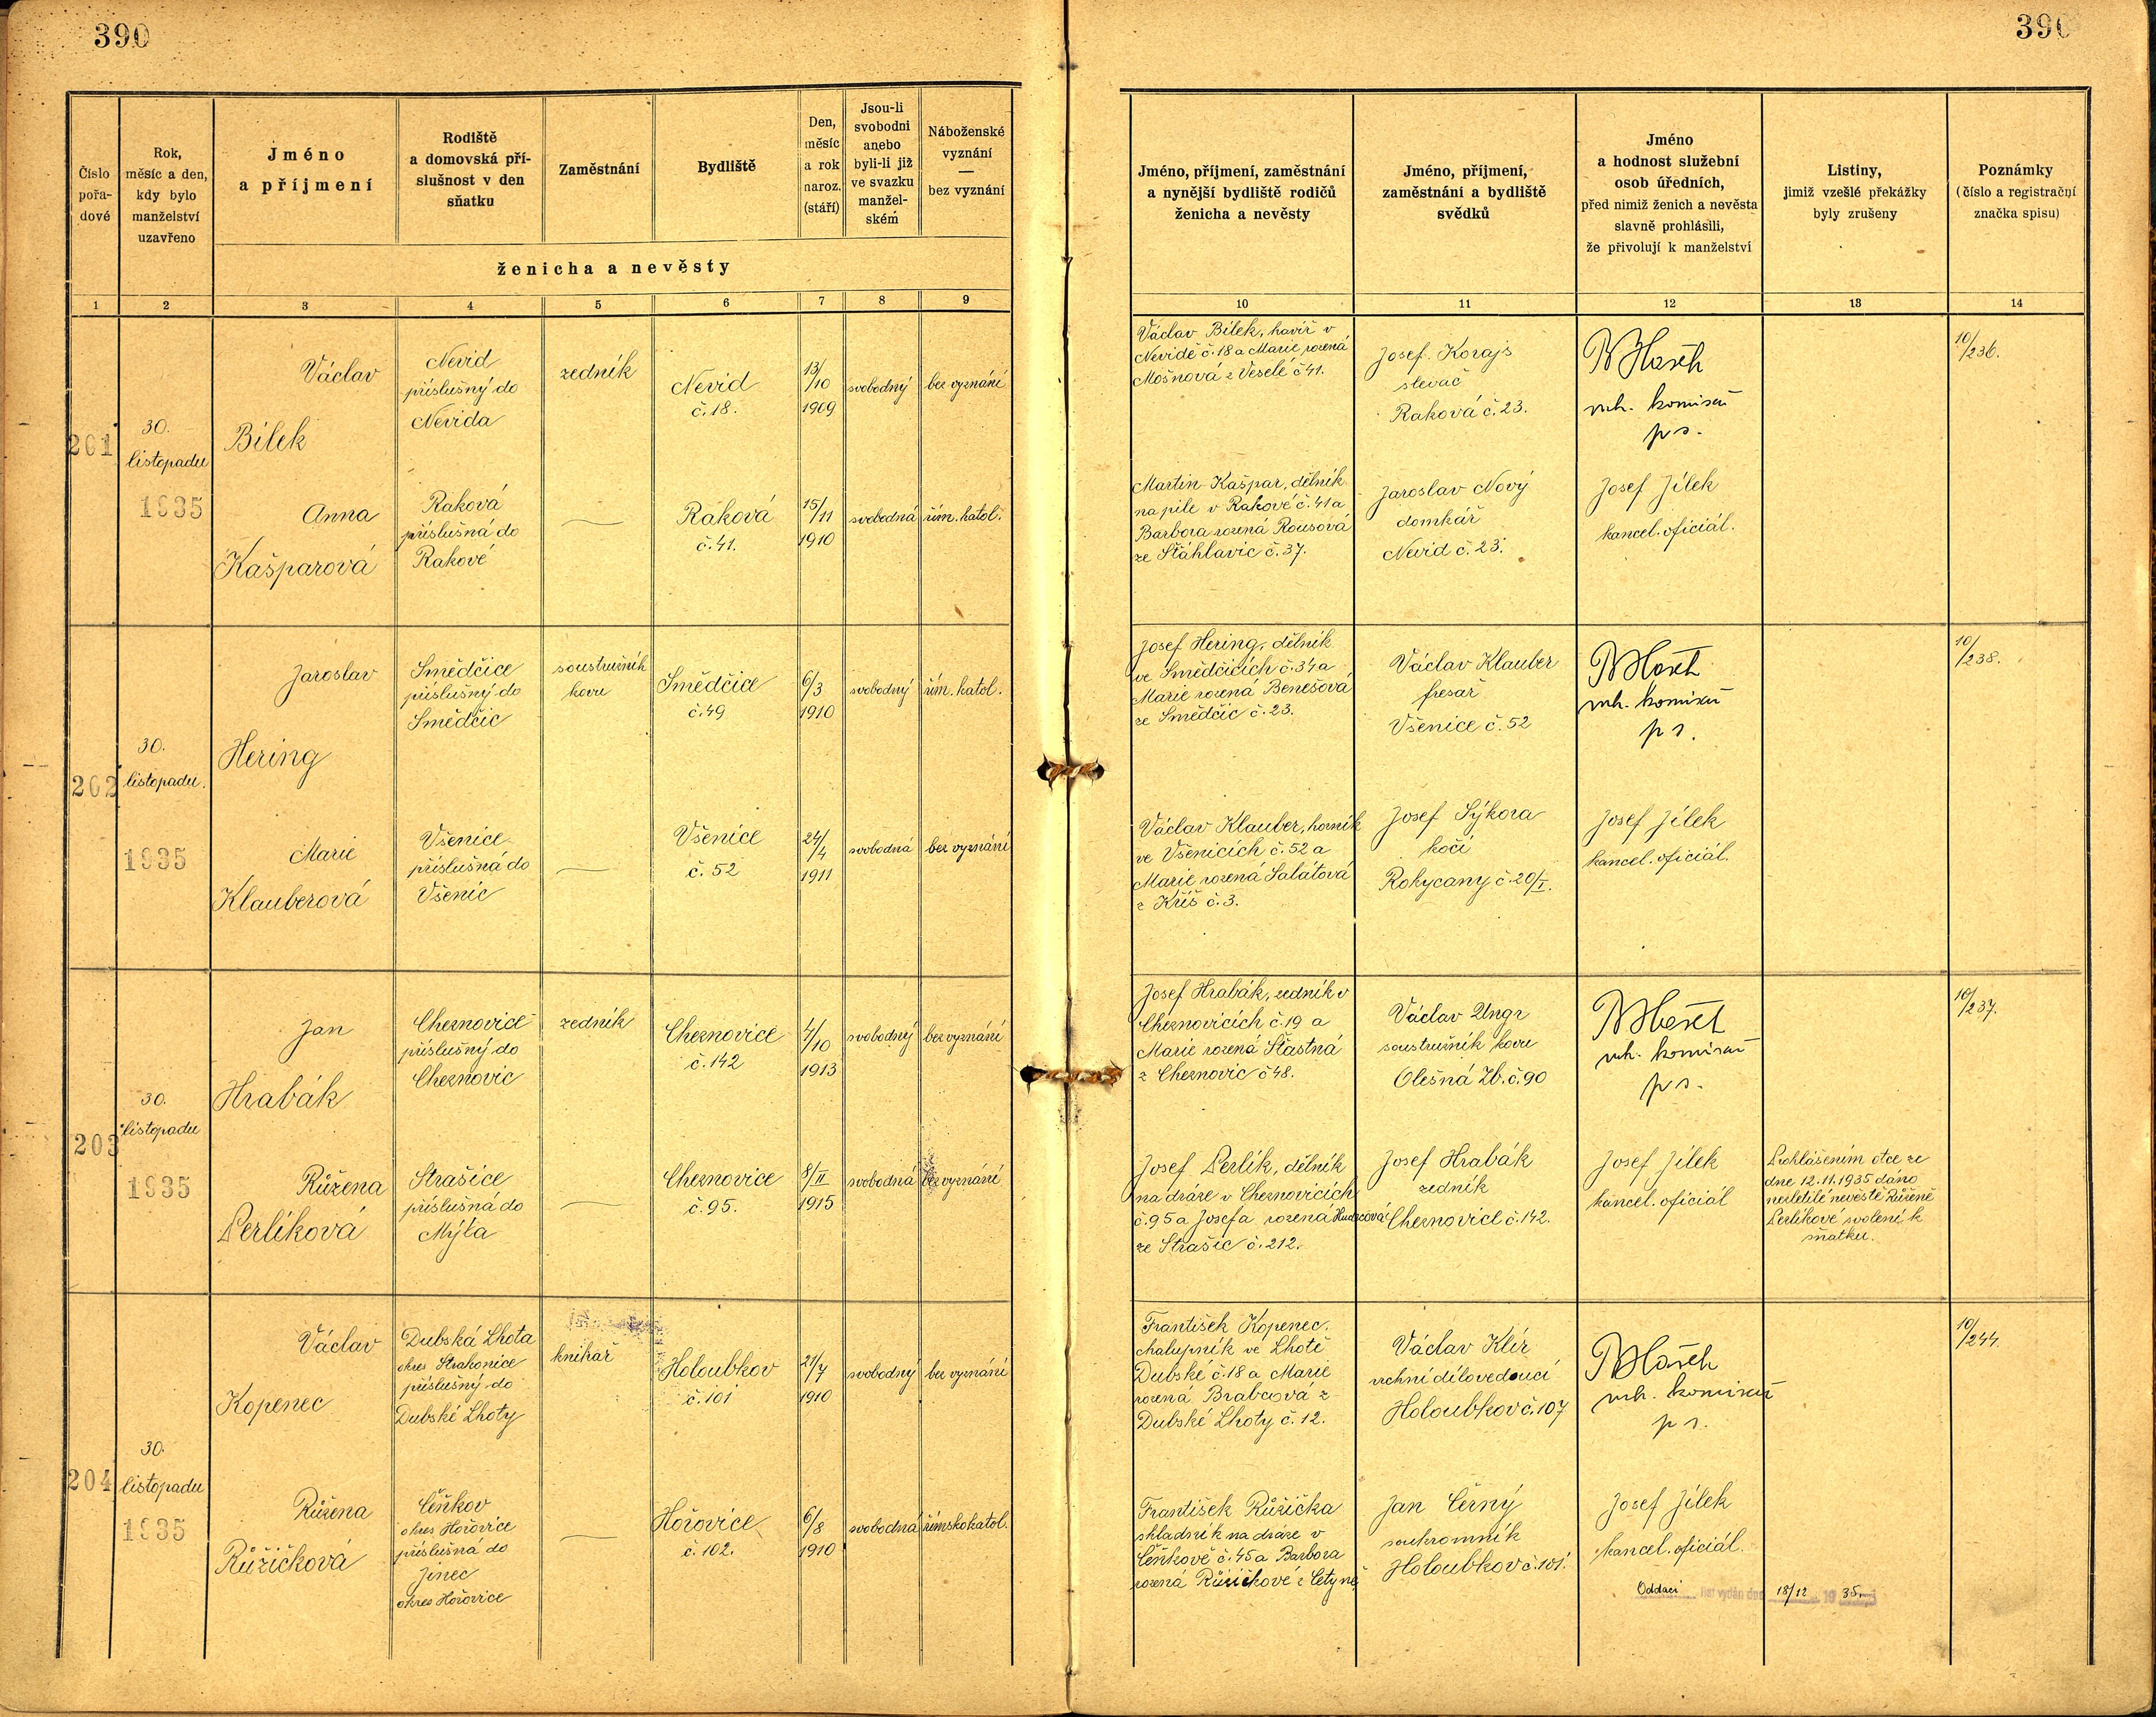 390
390
Číslo pořa- dové
Rok, měsíc a den, kdy bylo manželství uzavřeno
Jméno a příjmení
Rodiště a domovská pří- slušnost v den sňatku
Zaměstnání
Bydliště
Den, měsíc a rok naroz. (stáří)
Jsou-li svobodni anebo byli-li již ve svazku manžel- ském
Náboženské vyznání — bez vyznání
ženicha a nevěsty
Jméno, příjmení, zaměstnání a nynější bydliště rodičů ženicha a nevěsty
Jméno, příjmení, zaměstnání a bydliště svědků
Jméno a hodnost služební osob úředních, před nimiž ženich a nevěsta slavně prohlásili, že přivolují k manželství
Listiny, jimiž vzešlé překážky byly zrušeny
Poznámky (číslo a registrační značka spisu)
1 2 3 4 5 6 7 8 9 10 11 12 13 14
201
30.
listopadu
1935
Václav
Bílek
Nevid
příslušný do
Nevida
zedník
Nevid
č. 18.
13/10
1909
svobodný
bez vyznání
Václav Bílek, havíř v
Nevidě č. 18 a Marie rozená
Mošnová z Veselé č 41.
Josef Korajs
slevač
Raková č. 23.
vrh. komisař
p s.
10/236.
Anna
Kašparová
Raková
příslušná do
Rakové
Raková
č. 41.
15/11
1910
svobodná
řím. katol.
Martin Kašpar, dělník
na pile v Rakové č. 41 a
Barbora rozená Rousová
ze Šťáhlavic č. 37.
Jaroslav Nový
domkář
Nevid č. 23.
Josef Jílek
kancel. oficiál.
202
30.
listopadu.
1935
Jaroslav
Hering
Smědčice
příslušný do
Smědčic
soustružník
kovu
Smědčice
č. 49
6/3
1910
svobodný
řím. katol.
Josef Hering, dělník
ve Smědčicích č. 34 a
Marie rozená Benešová
ze Smědčic č. 23.
Václav Klauber
fresař
Všenice č. 52
vrh. komisař
p s.
10/238.
Marie
Klauberová
Všenice
příslušná do
Všenic
Všenice
č. 52
24/4
1911
svobodná
bez vyznání
Václav Klauber, horník
ve Všenicích č. 52 a
Marie rozená Salátová
z Kříš č. 3.
Josef Sýkora
kočí
Rokycany č. 20/I.
Josef Jílek
kancel. oficiál.
203
30.
listopadu
1935
Jan
Hrabák
Cheznovice
příslušný do
Cheznovic
zedník
Cheznovice
č. 142
4/10
1913
svobodný
bez vyznání
Josef Hrabák, zedník v
Cheznovicích č. 19 a
Marie rozená Šťastná
z Cheznovic č 48.
Václav Ungr
soustružník kovu
Olešná Zb. č. 90
vrh. komisař
p s.
10/237.
Růžena
Perlíková
Strašice
příslušná do
Mýta
Cheznovice
č. 95.
8/II
1915
svobodná
bez vyznání
Josef Perlík, dělník
na dráze v Cheznovicích
č. 95 a Josefa rozená Hudecová
ze Strašic č. 212.
Josef Hrabák
zedník
Cheznovice č. 142.
Josef Jílek
kancel. oficiál
Prohlášením otce ze
dne 12. 11. 1935 dáno
nezletilé nevěstě Růženě
Perlíkové svolení k
sňatku.
204
30.
listopadu
1935
Václav
Kopenec
Dubská Lhota
okres Strakonice
příslušný do
Dubské Lhoty
knihař
Holoubkov
č. 101
21/7
1910
svobodný
bez vyznání
František Kopenec,
chalupník ve Lhotě
Dubské č. 18 a Marie
rozená Brabcová z
Dubské Lhoty č. 12.
Václav Klír
vrchní dílovedoucí
Holoubkov č. 107
vrh. komisař
p s.
10/244.
Růžena
Růžičková
Čeňkov
okres Hořovice
příslušná do
Jinec
okres Hořovice
Hořovice
č. 102.
6/8
1910
svobodná
římskokatol.
František Růžička
skladník na dráze v
Čeňkově č. 45 a Barbora
rozená Růžičkové z Cetyně
Jan Černý
soukromník
Holoubkov č. 101.
Josef Jílek
kancel. oficiál.
Oddací list vydán dne 18/12 19 35.